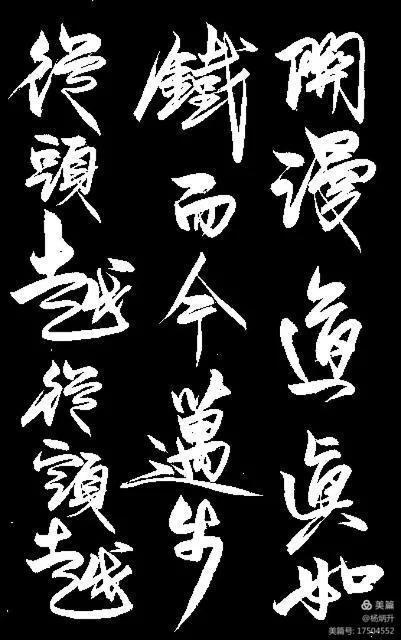 關漫道真如
鐵而今邁步
從頭越從頭越
美篇
@杨炳升
美篇号: 17504552